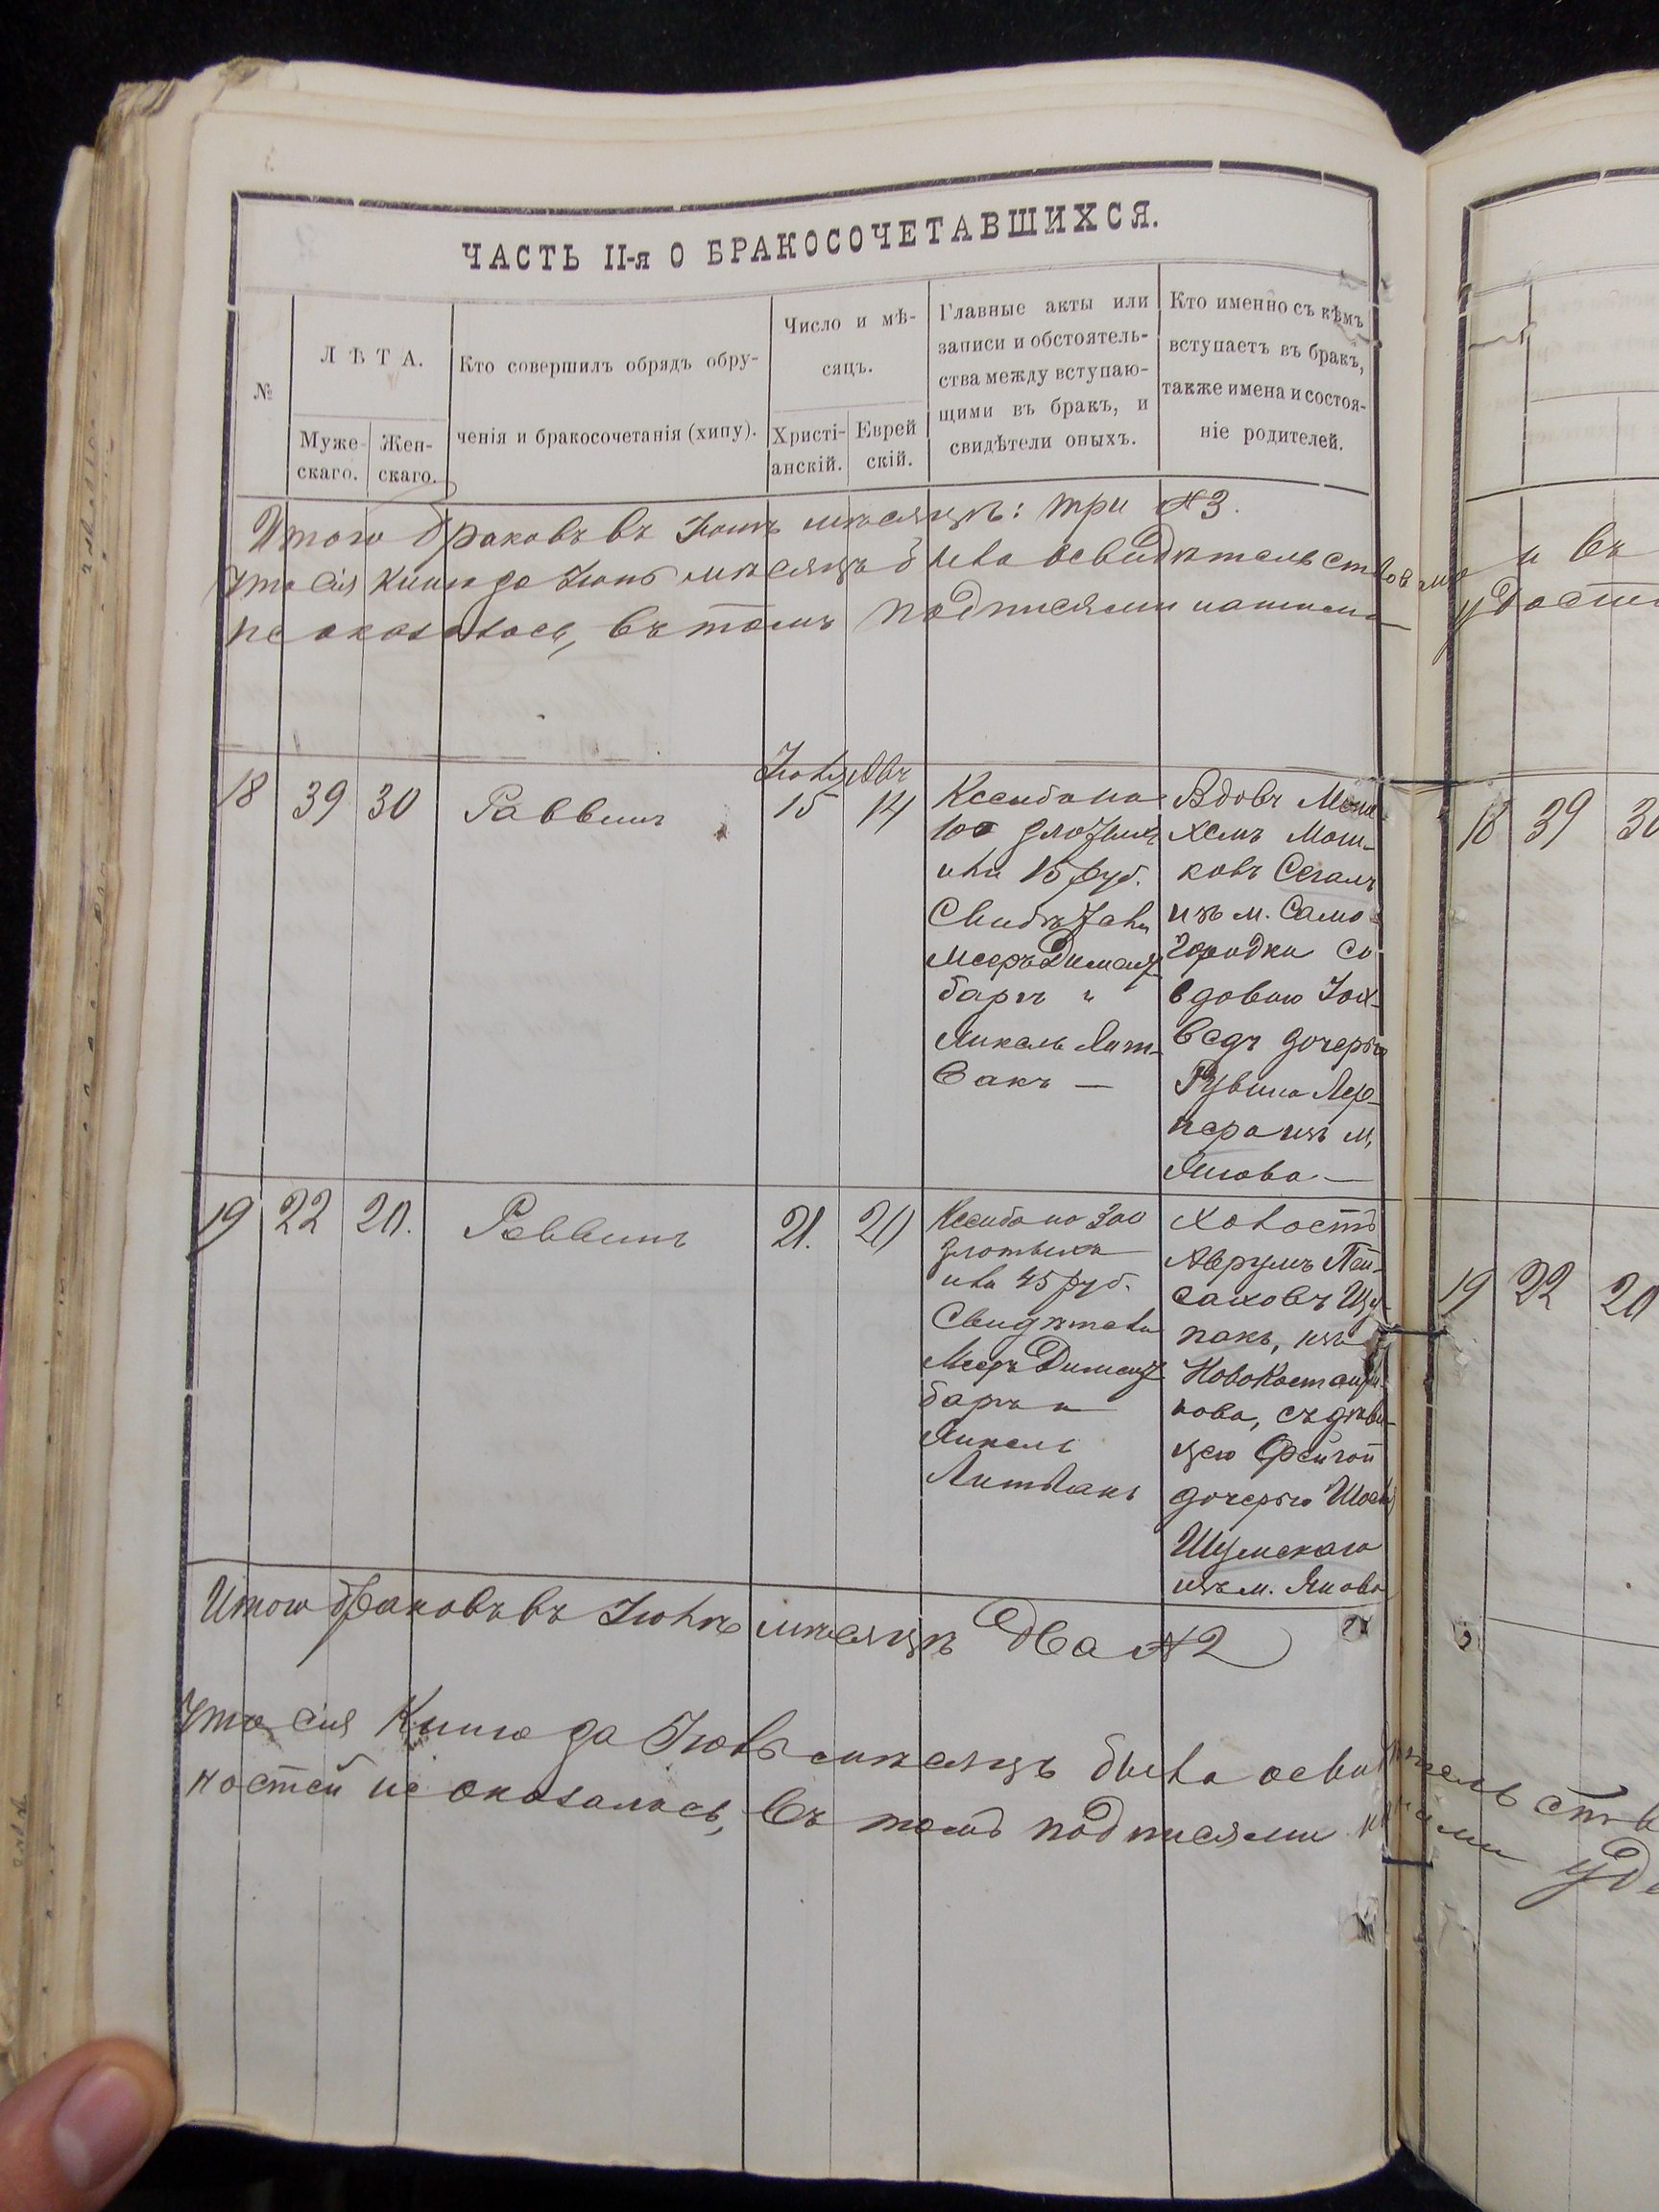 ЧАСТЬ II-я О БРАКОСОЧЕТАВШИХСЯ.
№
ЛѢТА.
Муже-
скаго.
Жен-
скаго.
Кто совершилъ обрядъ обру-
ченія и бракосочетанія (хипу).
Число и мѣ-
сяцъ.
Христі-
анскій.
Еврей
скій.
Главные акты или
записи и обстоятель-
ства между вступаю-
щими въ бракъ, и
свидѣтели оныхъ.
Кто именно съ кѣмъ
вступаетъ въ бракъ,
также имена и состоя-
ніе родителей.
Итого браковъ въ Іюнѣ мѣсяцѣ: три №3.
Что сія книга за Іюнь мѣсяцъ была освидѣтельствована и въ
не оказалось, въ томъ подписями нашими удости
18 39 30 Раввинъ
Іюля Авъ
15 14
Ксиба на
100 злотыхъ
или 15 руб.
Свидѣтели
Мееръ Диманд
баръ и
Янкель Лит-
вакъ —
Вдовъ Мона
хемъ Мош-
ковъ Сегалъ
изъ м. Само-
городки со
вдовою Іох-
ведъ дочерью
Рувина Лер-
нера изъ м.
Янова —
19 22 20. Раввинъ 21. 20
Ксиба на 300
злотыхъ
или 45 руб.
Свидѣтели
Мееръ Диманд
баръ и
Янкель
Литвакъ
Холостъ
Аврумъ Пей-
саховъ Щу-
пакъ, изъ
Новоконстанти-
нова, съ дѣви-
цею Фейгой
дочерью
Шумскаго
изъ м. Янова
Итого браковъ въ Іюлѣ мѣсяцѣ два №2
Что сія Книга за Іюль мѣсяцъ была освидѣтельств
ностей не оказалось, въ томъ подписями нашими удо
18 39 30
19 22 20